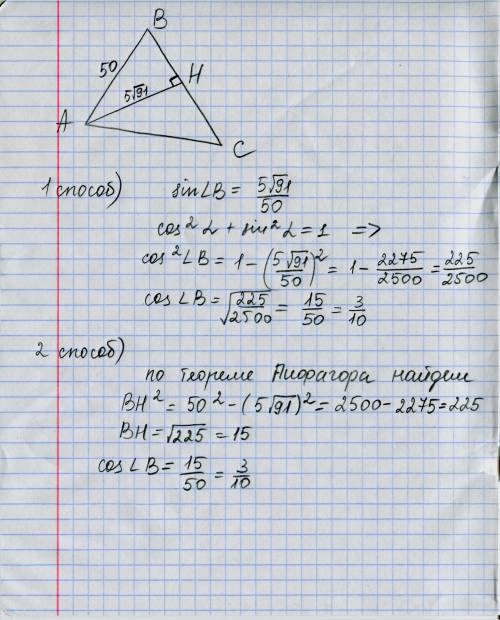 B
50
H
5√91
A
C
1 способ) sin∠B = 5√91/50
cos²α + sin²α = 1 =>
cos²∠B = 1 - (5√91/50)² = 1 - 2275/2500 = 225/2500
cos∠B = √225/√2500 = 15/50 = 3/10
2 способ)
по теореме Пифагора найдем
BH² = 50² - (5√91)² = 2500 - 2275 = 225
BH = √225 = 15
cos∠B = 15/50 = 3/10